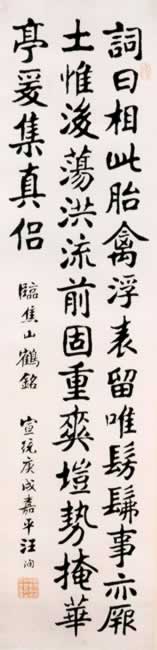 詞曰相此胎禽浮表留唯髣髴事亦厥
土惟後蕩洪流前固重爽塏勢掩華
亭爰集真侶
臨焦山鶴銘
宣統庚戌嘉平汪洵